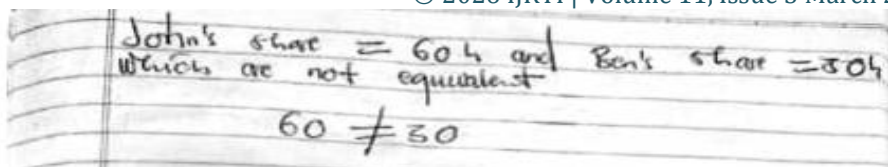 | Volume 11, Issue 3 March
John's share = 60h and Ben's share = 50h
which are not equivalent
60 ≠ 50